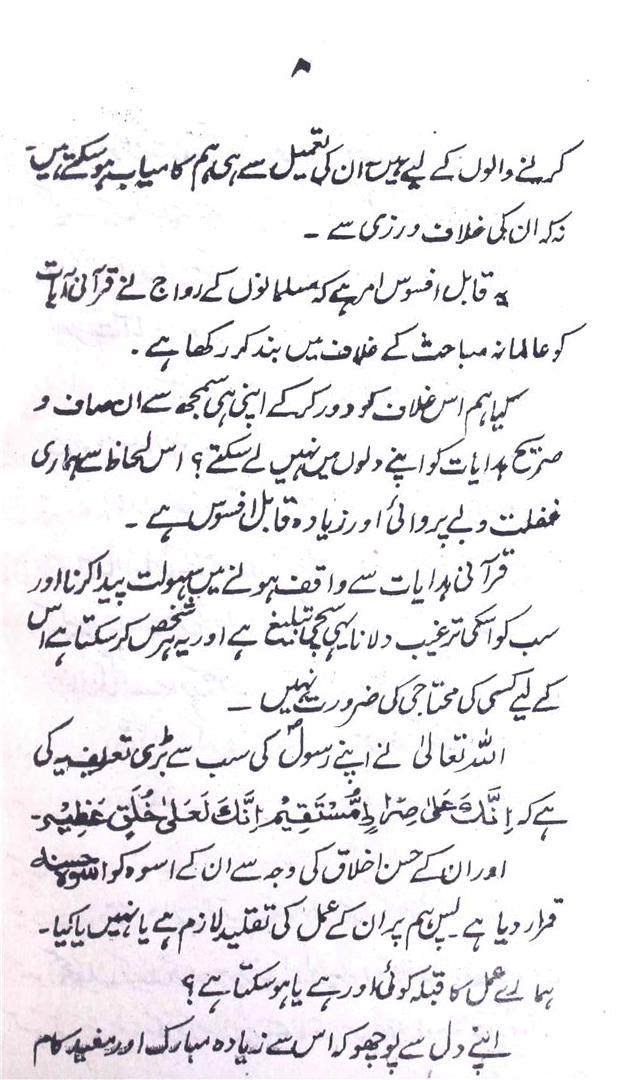 ۸
کرنے والوں کے لیے ہیں ان کی تعمیل سے ہی ہم کامیاب ہو سکتے ہیں۔
نہ کہ ان کی خلاف ورزی سے ۔
یہ قابل افسوس امر ہے کہ مسلمانوں کے رواج نے قرآنی آیات
کو عالمانہ مباحث کے غلاف میں بند کر رکھا ہے ۔
کیا ہم اس غلاف کو دور کر کے اپنی ہی سمجھ سے ان صاف و
صریح ہدایات کو اپنے دلوں میں نہیں لے سکتے ؟ اس لحاظ سے ہماری
غفلت و بے پروائی اور زیادہ قابل افسوس ہے ۔
قرآنی ہدایات سے واقف ہونے میں سہولت پیدا کرنا اور
سب کو اسکی ترغیب دلانا یہی سچی تبلیغ ہے اور یہ ہر شخص کر سکتا ہے اس
کے لیے کسی کی محتاجی کی ضرورت نہیں ۔
اللہ تعالیٰ نے اپنے رسولؐ کی سب سے بڑی تعریف یہ کی
ہے کہ اِنَّكَ عَلیٰ صِرَاطٍ مُّسْتَقِيْمٍ اِنَّكَ لَعَلیٰ خُلُقٍ عَظِیْمٍ۔
اور ان کے حسن اخلاق کی وجہ سے ان کے اسوہ کو اسوہ حسنہ
قرار دیا ہے پس ہم پر ان کے عمل کی تقلید لازم ہے یا نہیں یا کیا۔
ہمارے عمل کا قبلہ کوئی اور ہے یا ہو سکتا ہے ؟
اپنے دل سے پوچھو کہ اس سے زیادہ مبارک اور مفید کام